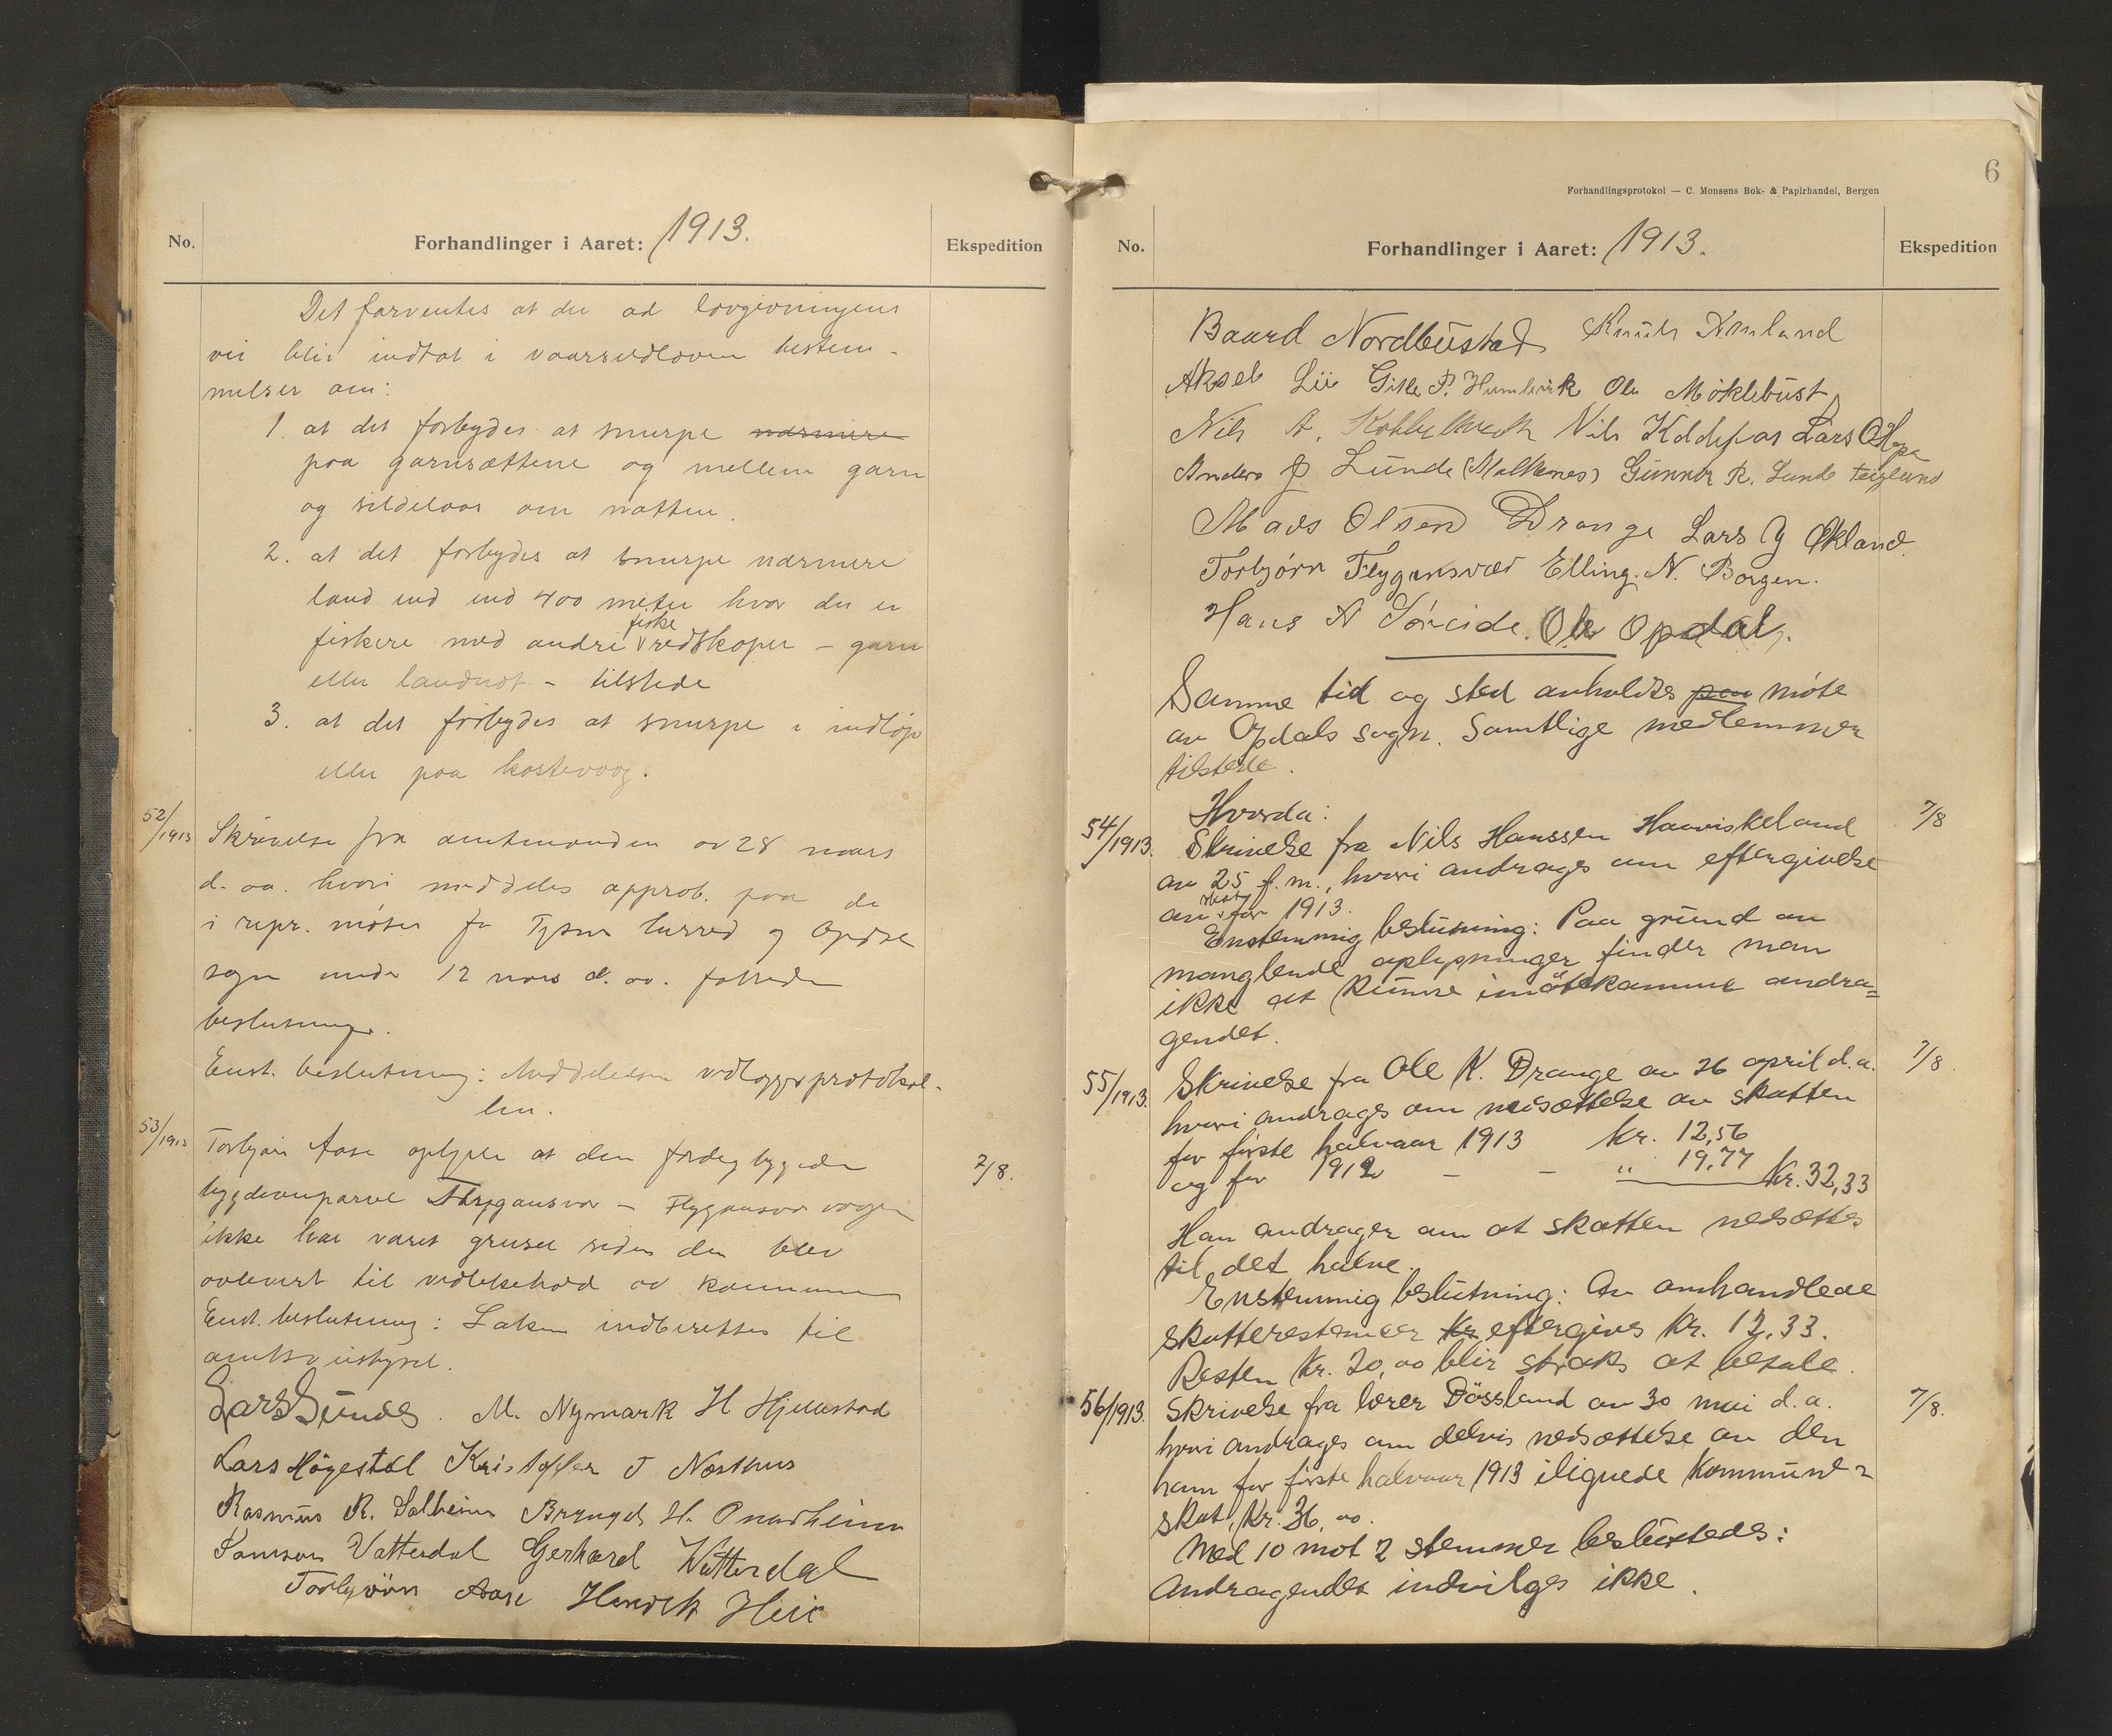 No.
Forhandlinger i Aaret: 1913.
Ekspedition
Det forventes at der ad lovgivningens
vei blir indtat i vaarsildloven bestem-
melser om:
1. at det forbydes at snurpe nærmere
paa garnsættene og mellem garn
og sildelaas om natten.
2. at det forbydes at snurpe nærmere
land ind end 400 meter hvor der er
fiske
fiskere med andre redskaper - garn
eller landnot - tilstede
3. at det forbydes at snurpe i indløp
eller paa kastevaag.
52/1913
Skrivelse fra amtmanden av 28 mars
d. aa. hvori meddeles approb. paa de
i repr. møter for Tysnes herred og Opdal
sogn under 12 mars d. aa. fattede
beslutninger.
Enst. beslutning: Meddelelsen vedlægges protokol-
len.
53/1913
Torbjørn Aase oplyste at den færdig byggede
bygdeveiparsel Flygansvær - Flygansvær vaagen
ikke har været gruset siden den blev
avlevert til vedlikehold av kommunen
Enst. beslutning: Saken indberettes til
amtsveistyret.
7/8.
Lars Lunde. M. Nymark H Hjellestad
Lars Høgestøl Kristoffer J Næsthus
Rasmus R. Solheim H.
Samson Vatterdal Gerhard Watterdal
Torbjørn Aase Hendrik Heie
6
Forhandlingsprotokol — C. Monsens Bok- & Papirhandel, Bergen
No.
Forhandlinger i Aaret: 1913.
Ekspedition
Baard Nordbustad Knut Amland
Aksel Lie Gitle P. Humlevik Ole Møklebust
Nils A. Nils Lars O Hope
Anders J Lunde (Malkenes) Gunnar R. Lunde Teiglund
Mads Olsen Drange Lars J Økland.
Torbjørn Flygansvær Elling. N. Borgen.
Hans A Søreide. Ole Opdal.
Samme tid og sted avholdtes paa møte
av Opdals sogn. Samtlige medlemmer
tilstede.
Hvorda:
54/1913.
Skrivelse fra Nils Hanssen Haaviskeland
av 25 f. m., hvori andrages om eftergivelse
skat
av for 1913.
Enstemmig beslutning: Paa grund av
manglende oplysninger finder man
ikke at kunne imøtekomme andra=
gendet.
7/8
55/1913.
Skrivelse fra Ole K. Drange av 26 april d.a.
hvori andrages om nedsættelse av skatten
for første halvaar 1913 Kr. 12,56
og for 1912 - - " 19,77 Kr. 32,33
Han andrager om at skatten nedsættes
til det halve.
Enstemmig beslutning: Av omhandlede
skatterestancer Kr. eftergives Kr. 12,33.
Resten Kr. 20,00 blir straks at betale.
7/8.
56/1913.
Skrivelse fra lærer Døssland av 30 mai d. a.
hvori andrages om delvis nedsættelse av den
ham for første halvaar 1913 ilignede kommune=
skat, Kr. 36,00.
Med 10 mot 2 stemmer beslutedes:
Andragendet indvilges ikke.
7/8.